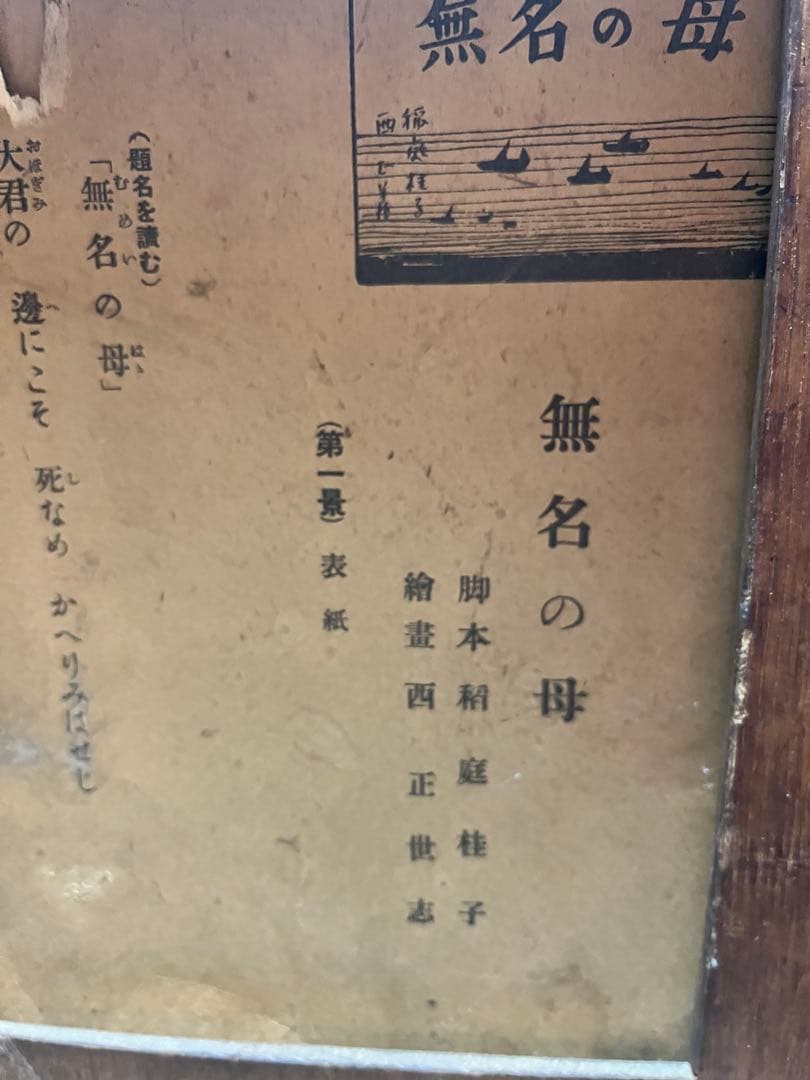 無名の母
稲庭桂子
西正世志
無名の母
脚本 稻庭桂子
繪畫 西正世志
(第一景) 表紙
(題名を讀む)
「無名の母」
むめい はゝ
大君の 邊にこそ 死なめ かへりみはせじ
おほぎみ へ し